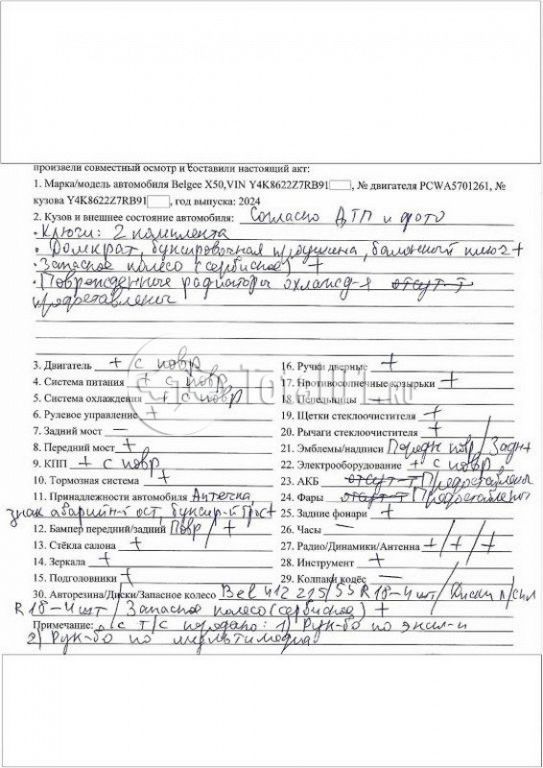 произвели совместный осмотр и составили настоящий акт:
1. Марка/модель автомобиля Belgee X50,VIN Y4K8622Z7RB91, № двигателя PCWA5701261, №
кузова Y4K8622Z7RB91, год выпуска: 2024
2. Кузов и внешнее состояние автомобиля: Согласно ДТП и фото
• Ключи: 2 комплекта
• Домкрат, буксировочная проушина, балонный ключ +
• Запасное колесо (сервисное) +
• Поврежденные радиаторы охлажд-я отсут-т
предоставлены
3. Двигатель + с повр
16. Ручки дверные +
4. Система питания + с повр
17. Противосолнечные козырьки +
5. Система охлаждения + с повр
18. Пепельницы —
6. Рулевое управление +
19. Щетки стеклоочистителя +
7. Задний мост —
20. Рычаги стеклоочистителя +
8. Передний мост +
21. Эмблемы/надписи Передн повр / Задн +
9. КПП + с повр
22. Электрооборудование + с повр
10. Тормозная система +
23. АКБ отсут-т Предоставлены
11. Принадлежности автомобиля Аптечка,
24. Фары отсут-т Предоставлены
знак аварийн-й ост, буксир-й трос +
25. Задние фонари +
12. Бампер передний/задний Повр / +
26. Часы —
13. Стёкла салона +
27. Радио/Динамики/Антенна +/+/+
14. Зеркала +
28. Инструмент +
15. Подголовники +
29. Колпаки колёс —
30. Авторезина/Диски/Запасное колесо Bel 412 215/55 R18-4 шт / Диски л/спл
R18-4 шт / Запасное колесо (сервисное) +
Примечание: С Т/С передано: 1) Рук-во по экспл-и
2) Рук-во по мультимедиа